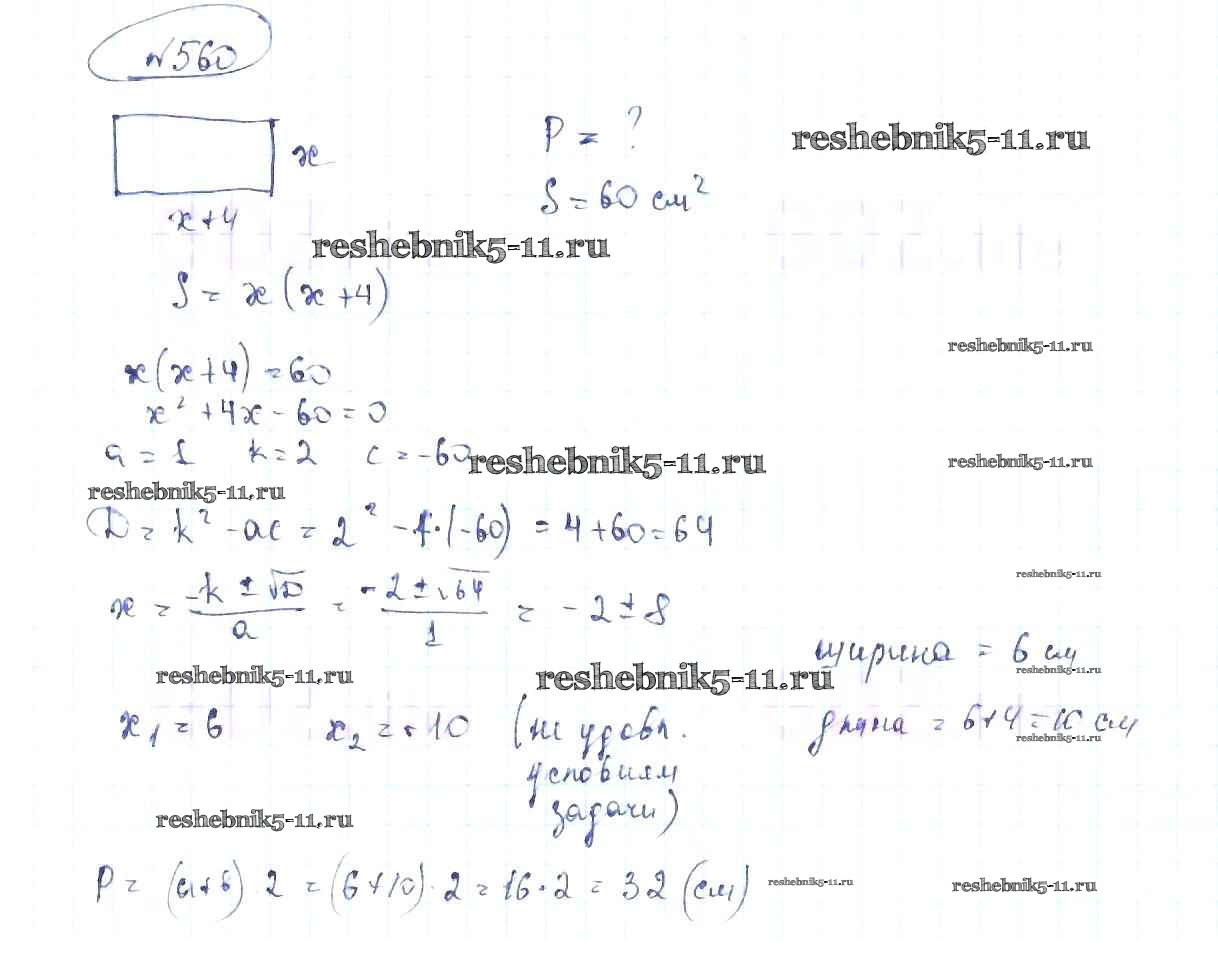 №560
x
P = ?
reshebnik5-11.ru
S = 60 см²
x+4
reshebnik5-11.ru
S = x(x+4)
reshebnik5-11.ru
x(x+4) = 60
x² + 4x - 60 = 0
a = 1 k = 2 c = -60
reshebnik5-11.ru
reshebnik5-11.ru
reshebnik5-11.ru
D = k² - ac = 2² - 1·(-60) = 4 + 60 = 64
reshebnik5-11.ru
x = (-k ± √D)/a = (-2 ± √64)/1 = -2 ± 8
ширина = 6 см
reshebnik5-11.ru
reshebnik5-11.ru
reshebnik5-11.ru
x₁ = 6 x₂ = -10 (не удовл.
условиям
задачи)
длина = 6+4 = 10 см
reshebnik5-11.ru
reshebnik5-11.ru
P = (a+b)·2 = (6+10)·2 = 16·2 = 32 (см)
reshebnik5-11.ru
reshebnik5-11.ru